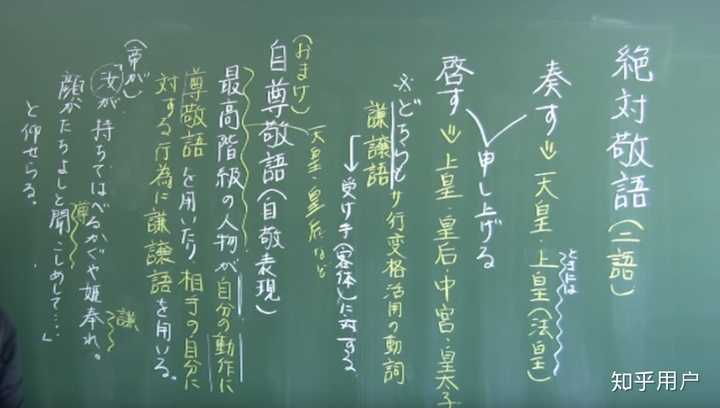 絶対敬語(二語)
ときには
奏す⇒天皇・上皇(法皇)
申し上げる
啓す⇒上皇・皇后・中宮・皇太子
※どちらもサ行変格活用の動詞
謙譲語
→受け手(客体)に対する
天皇・皇后など
(おまけ)
自尊敬語(自敬表現)
最高階級の人物が自分の動作に
尊敬語を用いたり相手の自分に
対する行為に謙譲語を用いる。
(帝が)
「汝が持ちてはべるかぐや姫奉れ。
謙
顔かたちよしと聞こしめして…」
尊
と仰せらる。
知乎用户